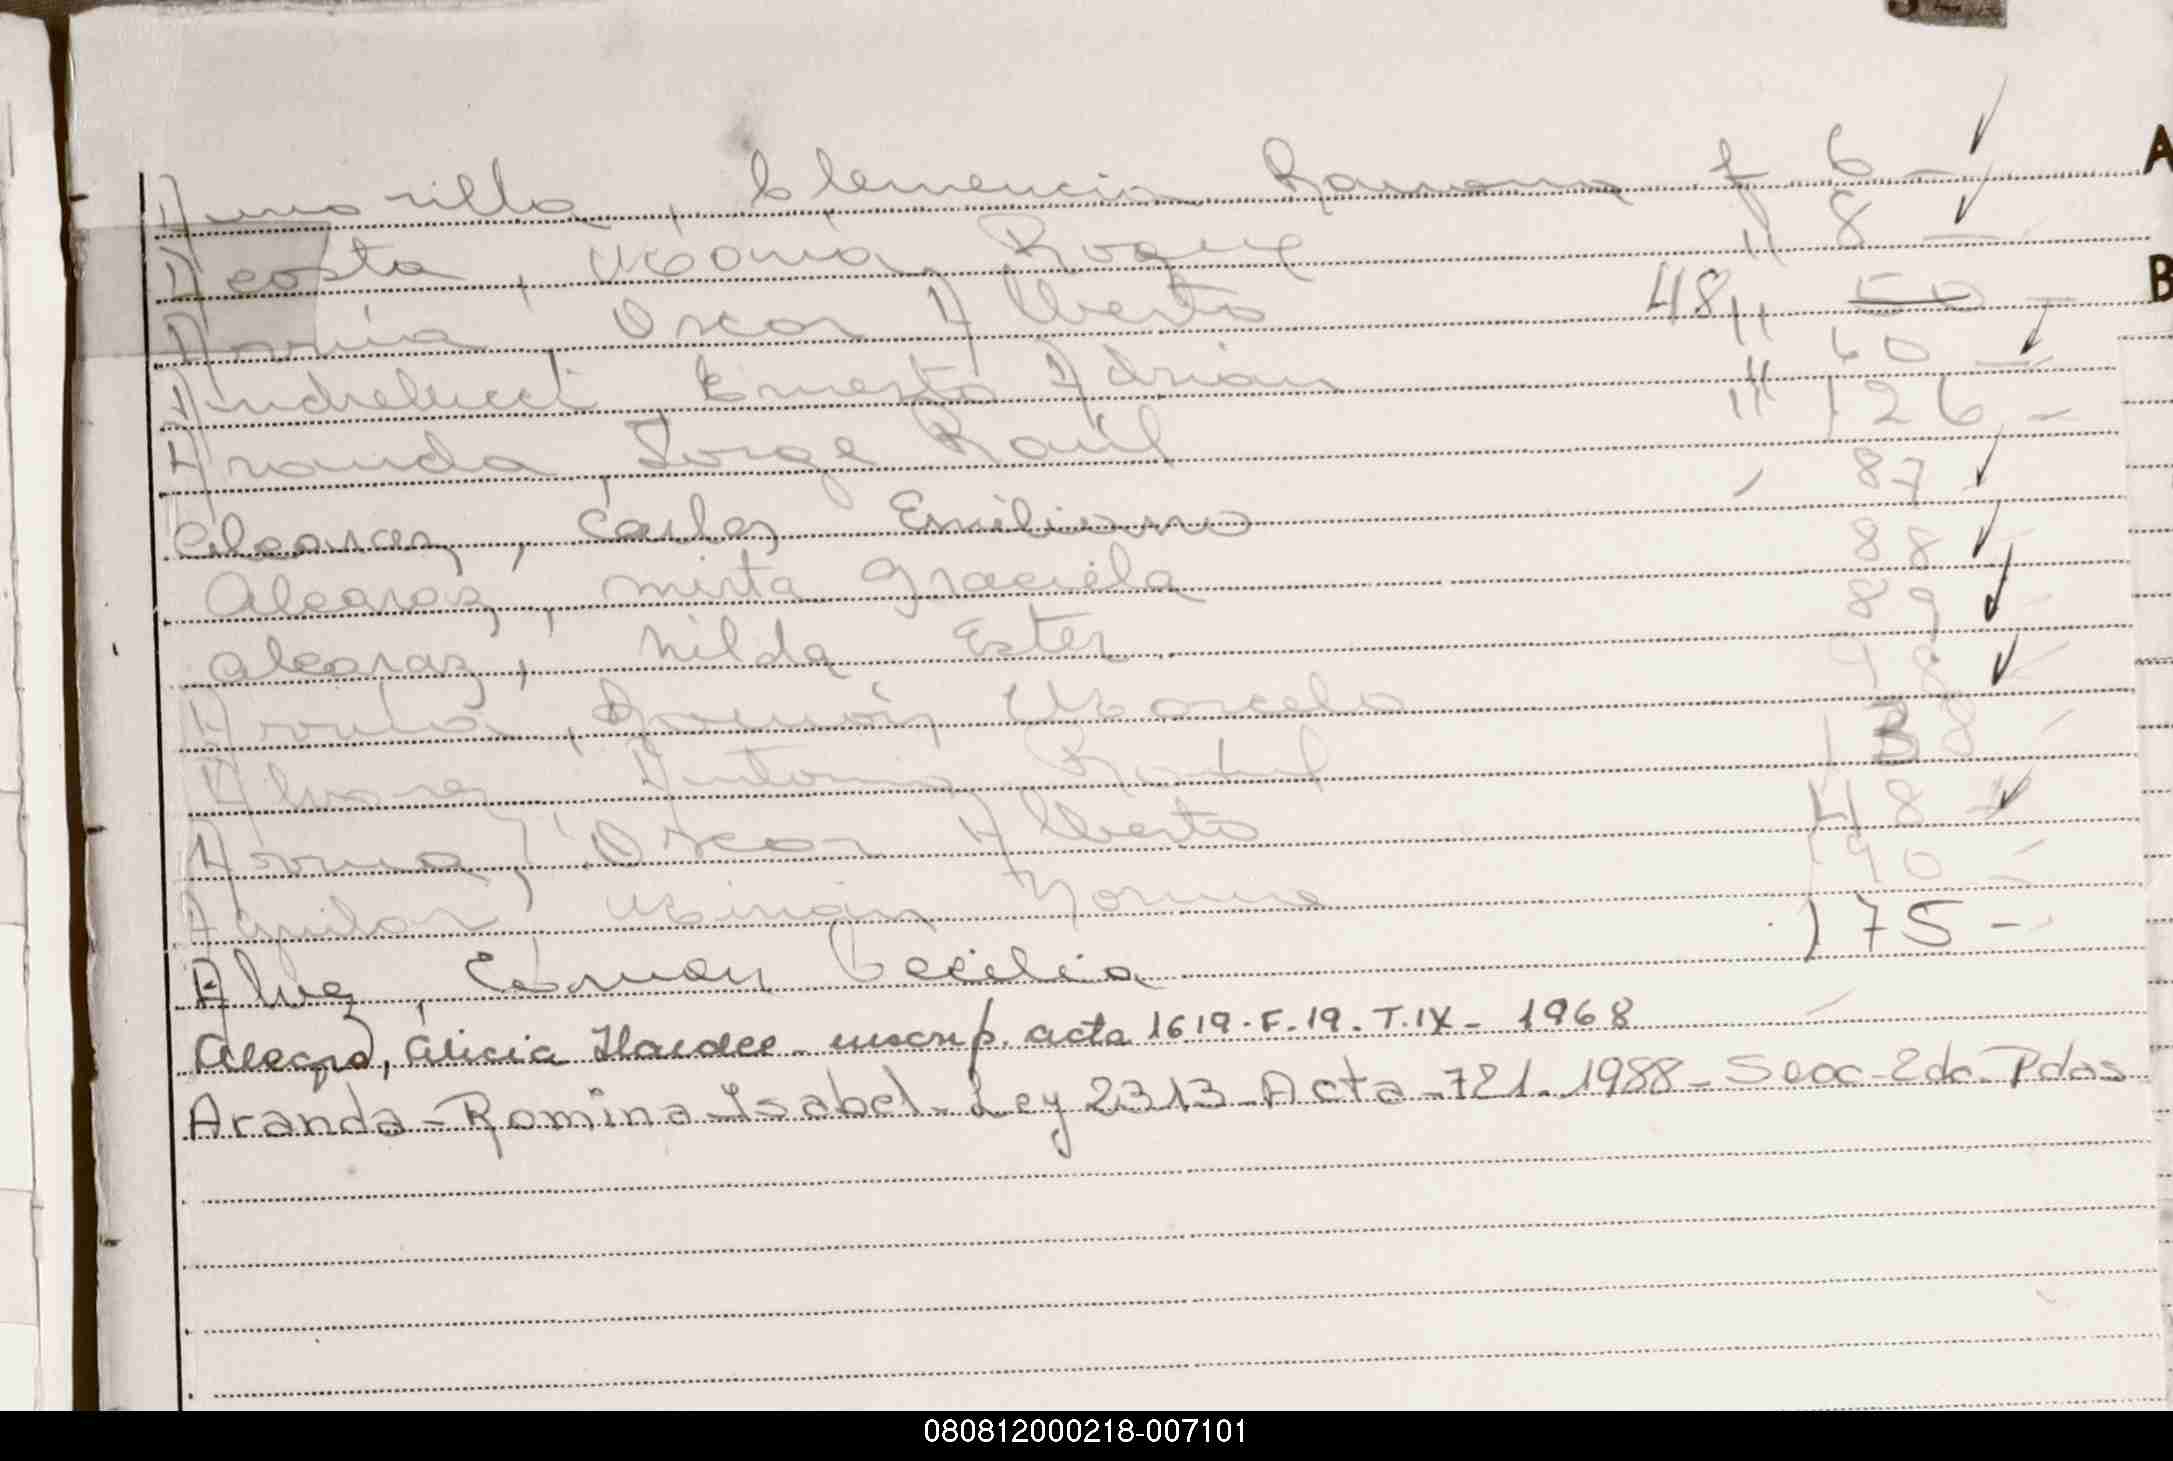 A
Amarilla, Clemencia Ramona f 6 -
Acosta, María Roque " 8 -
B
Arrúa Oscar Alberto 48 " 50 -
Andrelucci, Ernesto Adrian " 60 -
Aranda, Jorge Raúl " 126 -
Alcaraz, Carlos Emiliano 87
Alcaraz, Mirta Graciela 88
Alcaraz, Nilda Ester 89
Marcelo 98
Alvarez Antonio 138
Arrua, Oscar Alberto 48 -
Aguilar Mirian Norma 190 -
Alvez, Carmen Cecilia 175 -
Alegre, Alicia Haidee - inscrip. acta 1619 - F. 19 - T. IX - 1968
Aranda - Romina Isabel - Ley 2313 - Acta - 721 - 1988 - Secc - 2da - Pdas
080812000218-007101